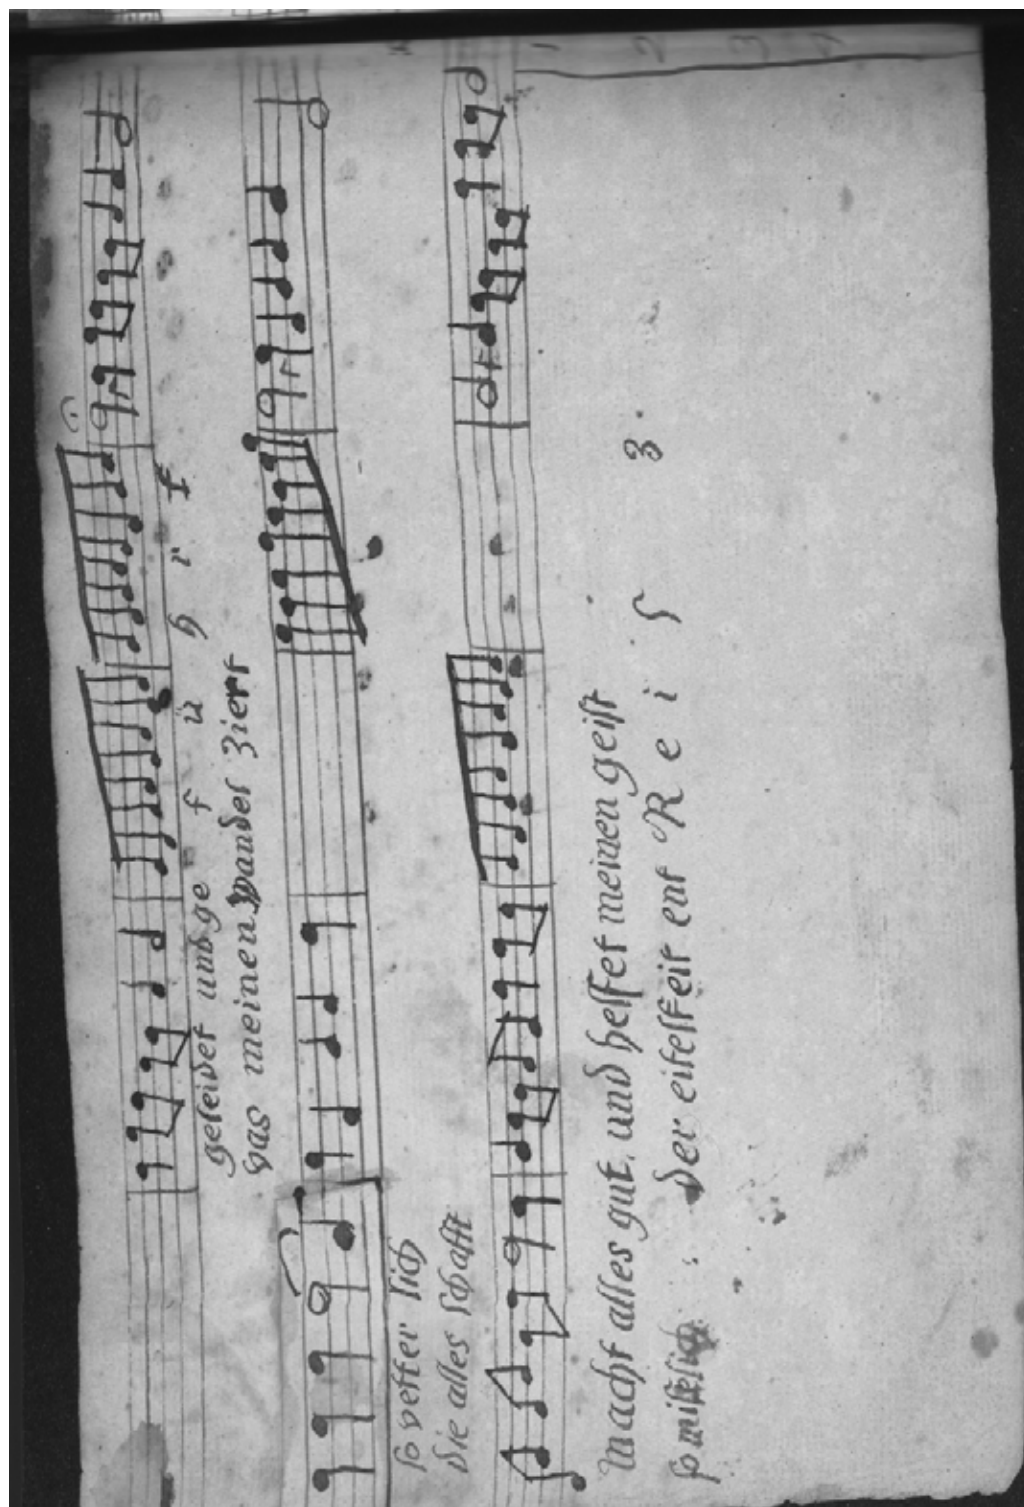 geleidet und ge f ü h r t
das meinen wandel ziert
so vetterlich
die alles schafft
macht alles gut. und helffet meinen geist 3.
der eitelkeit ent R e i s
1 2 3 4